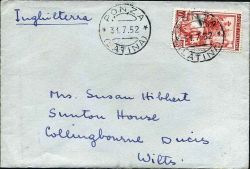 Inghilterra
PONZA
31.7.52
(LATINA)
PONZA
(LATINA)
Mrs. Susan Hibbert
Sunton House
Collingbourne Ducis
Wilts.